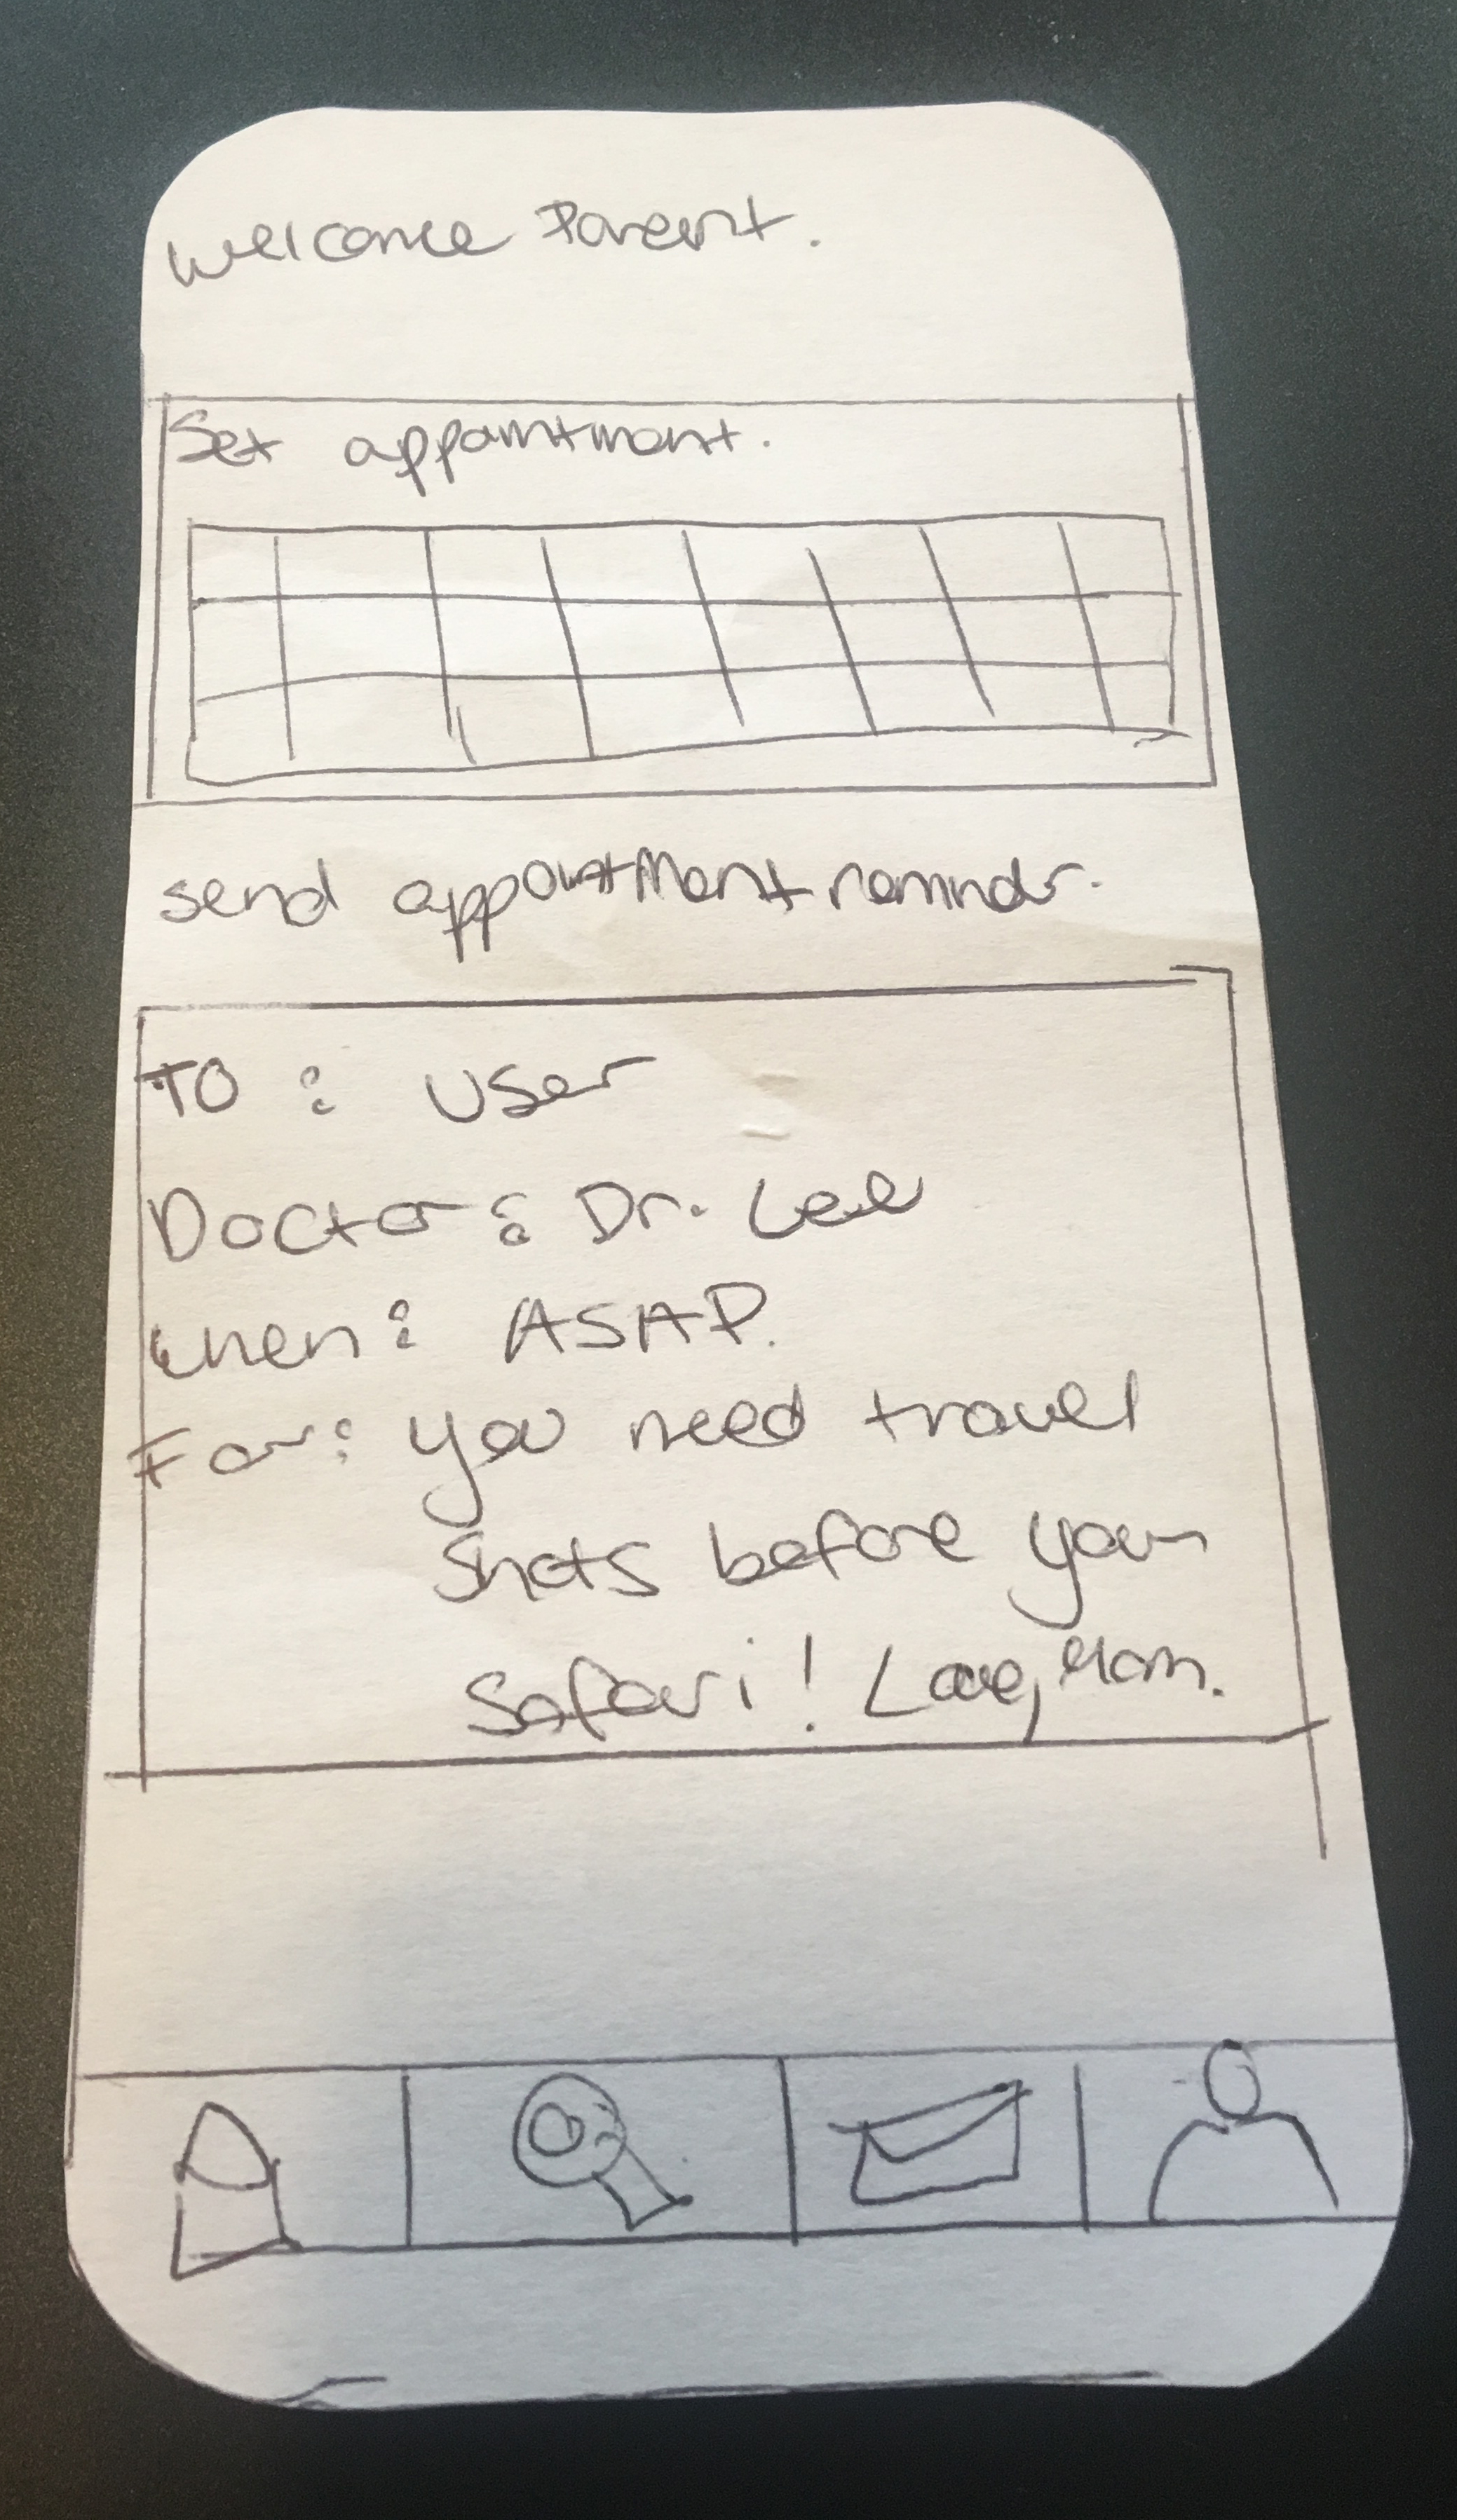 Welcome Parent.
Set appointment.
send appointment remindr.
TO : User
Doctor : Dr. Lee
When : ASAP.
For : you need travel
shots before your
Safari! Love, Mom.